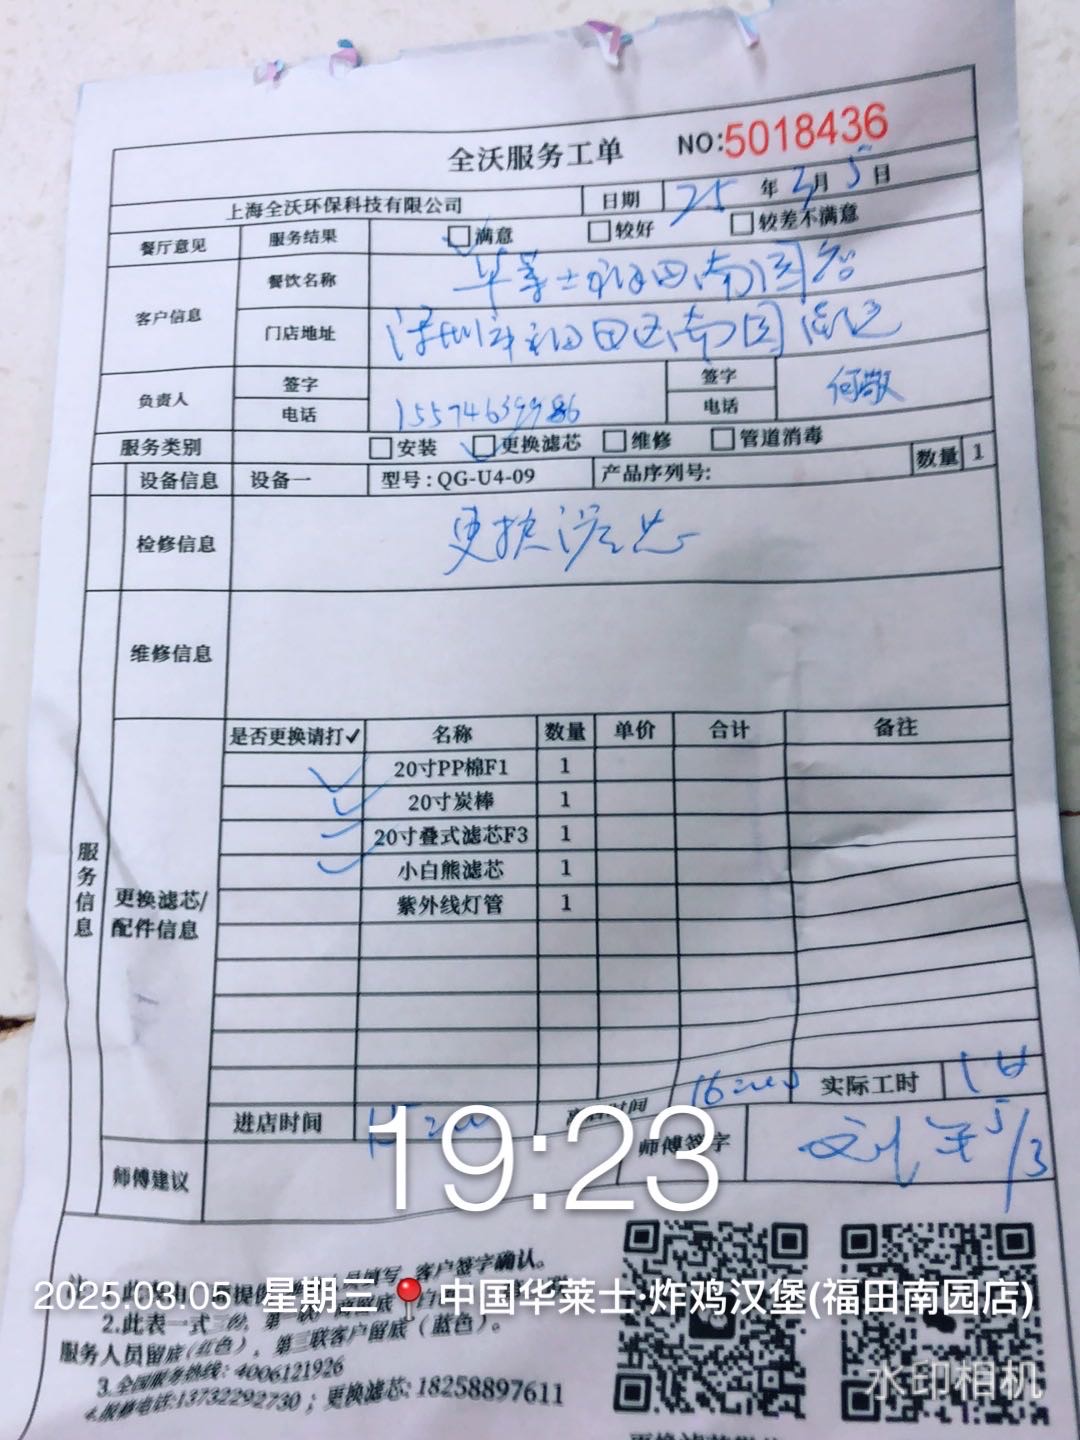 全沃服务工单 NO:5018436
上海全沃环保科技有限公司 日期 25年3月5日
餐厅意见 服务结果 满意 较好 较差不满意
客户信息 餐饮名称 华莱士福田南园店
门店地址 深圳市福田区南园街道
负责人 签字 签字 何敬
电话 15574639986 电话
服务类别 安装 更换滤芯 维修 管道消毒
设备信息 设备一 型号:QG-U4-09 产品序列号: 数量 1
检修信息 更换滤芯
维修信息
服务信息
更换滤芯/
配件信息
是否更换请打✓ 名称 数量 单价 合计 备注
✓ 20寸PP棉F1 1
✓ 20寸炭棒 1
✓ 20寸叠式滤芯F3 1
✓ 小白熊滤芯 1
紫外线灯管 1
进店时间 时间 实际工时
19:23
师傅建议 师傅签字 5/3
2025.03.05 星期三 中国华莱士·炸鸡汉堡(福田南园店)
客户签字确认。
2.此表一式三份,
服务人员留底(红色),第三联客户留底(蓝色)。
3.全国服务热线:4006121926
4.报修电话:13732292730;更换滤芯:18258897611
水印相机